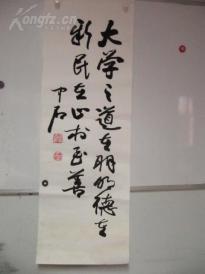 大学之道在明明德在
新民在止于至善
中石